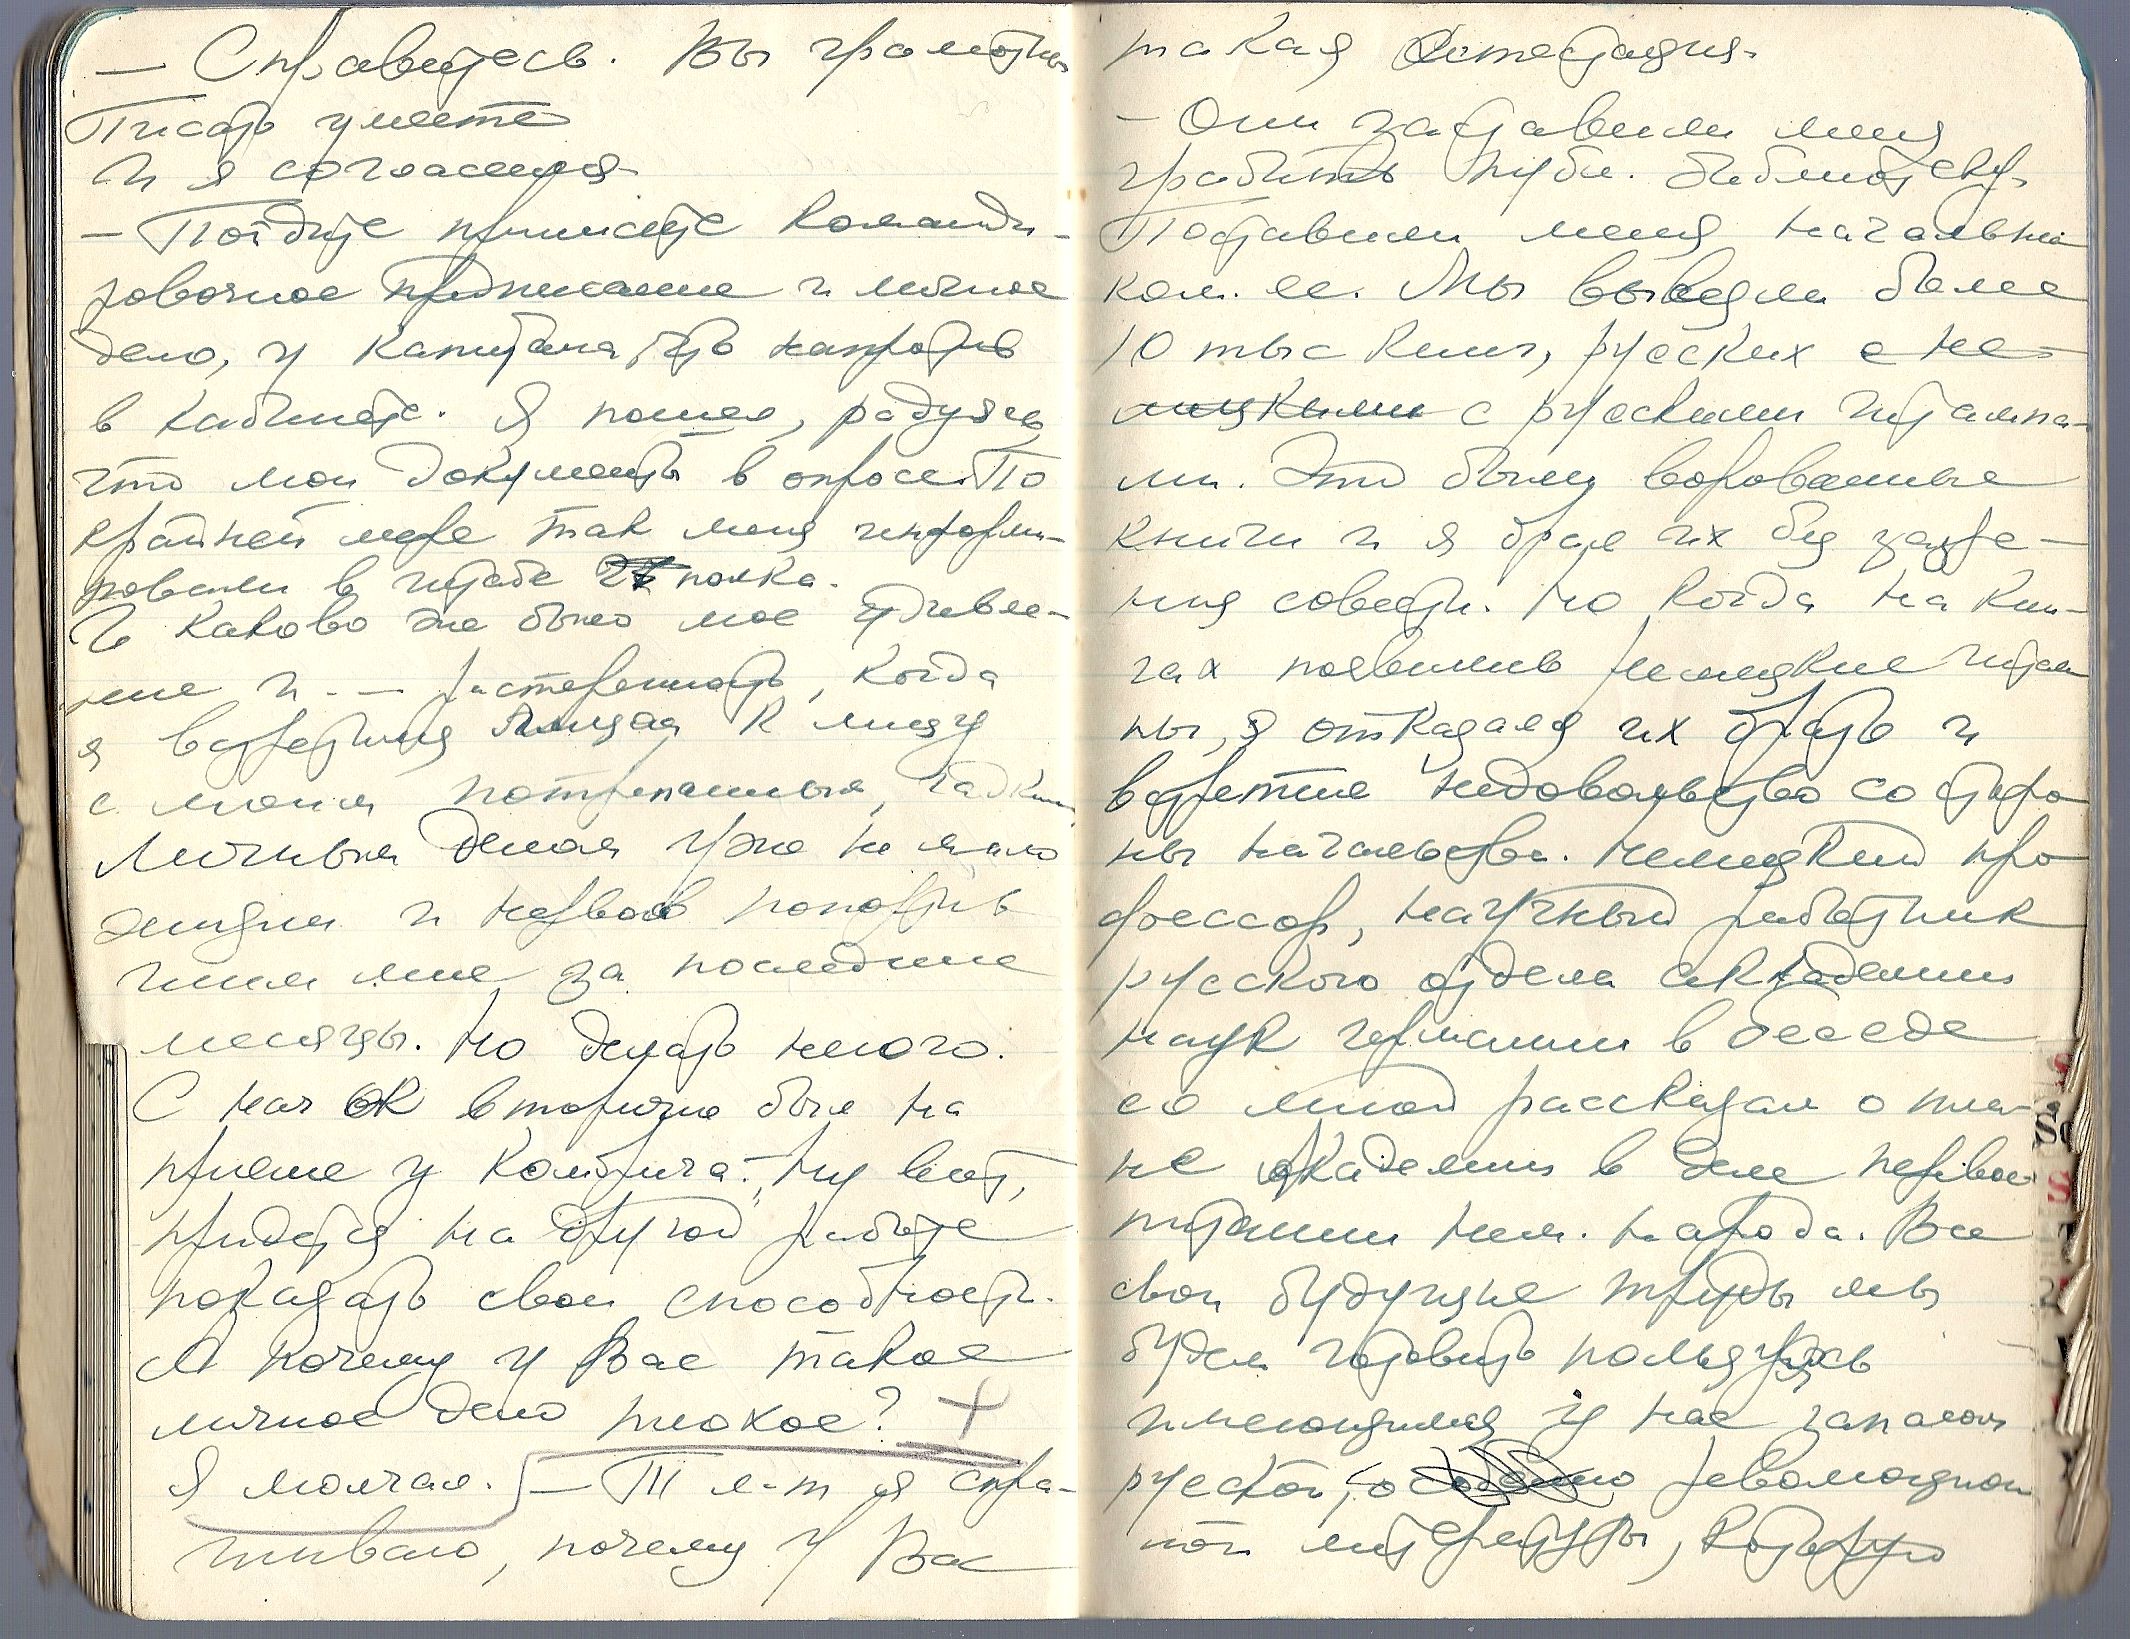 — Справитесь. Вы грамотны
Писать умеете
И я согласился
— Пойдите принесите команди-
ровочное предписание и личное
дело, у капитана, что напротив
в кабинете. Я пошел, радуясь,
что мои документы в опросе. По
крайней мере так меня информи-
ровали в штабе 27 полка.
И каково же было мое удивле-
ние и - — растерянность, когда
я встретился лицом к лицу
с моим потрепанным, гадким
личным делом уже не мало
жизни и нервов попортив
шим мне за последние
месяцы. Но делать нечего.
С нач ОК вторично был на
приеме у комбрига: „Ну вот,
придется на другой работе
показать свои способности.
А почему у Вас такое
личное дело плохое? +
Я молчал. — Т л-т я спра-
шиваю, почему у Вас
такая аттестация.
— Они заставили меня
грабить публ. библиотеку.
Поставили меня начальни
ком. ее. Мы вывезли более
10 тыс книг, русских с не-
мецкими с русскими штампа-
ми. Это были ворованные
книги и я брал их без зазре-
ния совести. Но когда на кни-
гах появились немецкие штам
пы, я отказался их брать и
встретил недовольство со сторо
ны начальства. Немецкий про
фессор, научный работник
русского отдела академии
наук германии в беседе
со мной рассказал о пла-
не академии в деле перевос-
питании нем. народа. Все
свои будущие труды мы
будем готовить пользуясь
имеющимся у нас запасом
русской, особенно революцион
ной литературы, которую